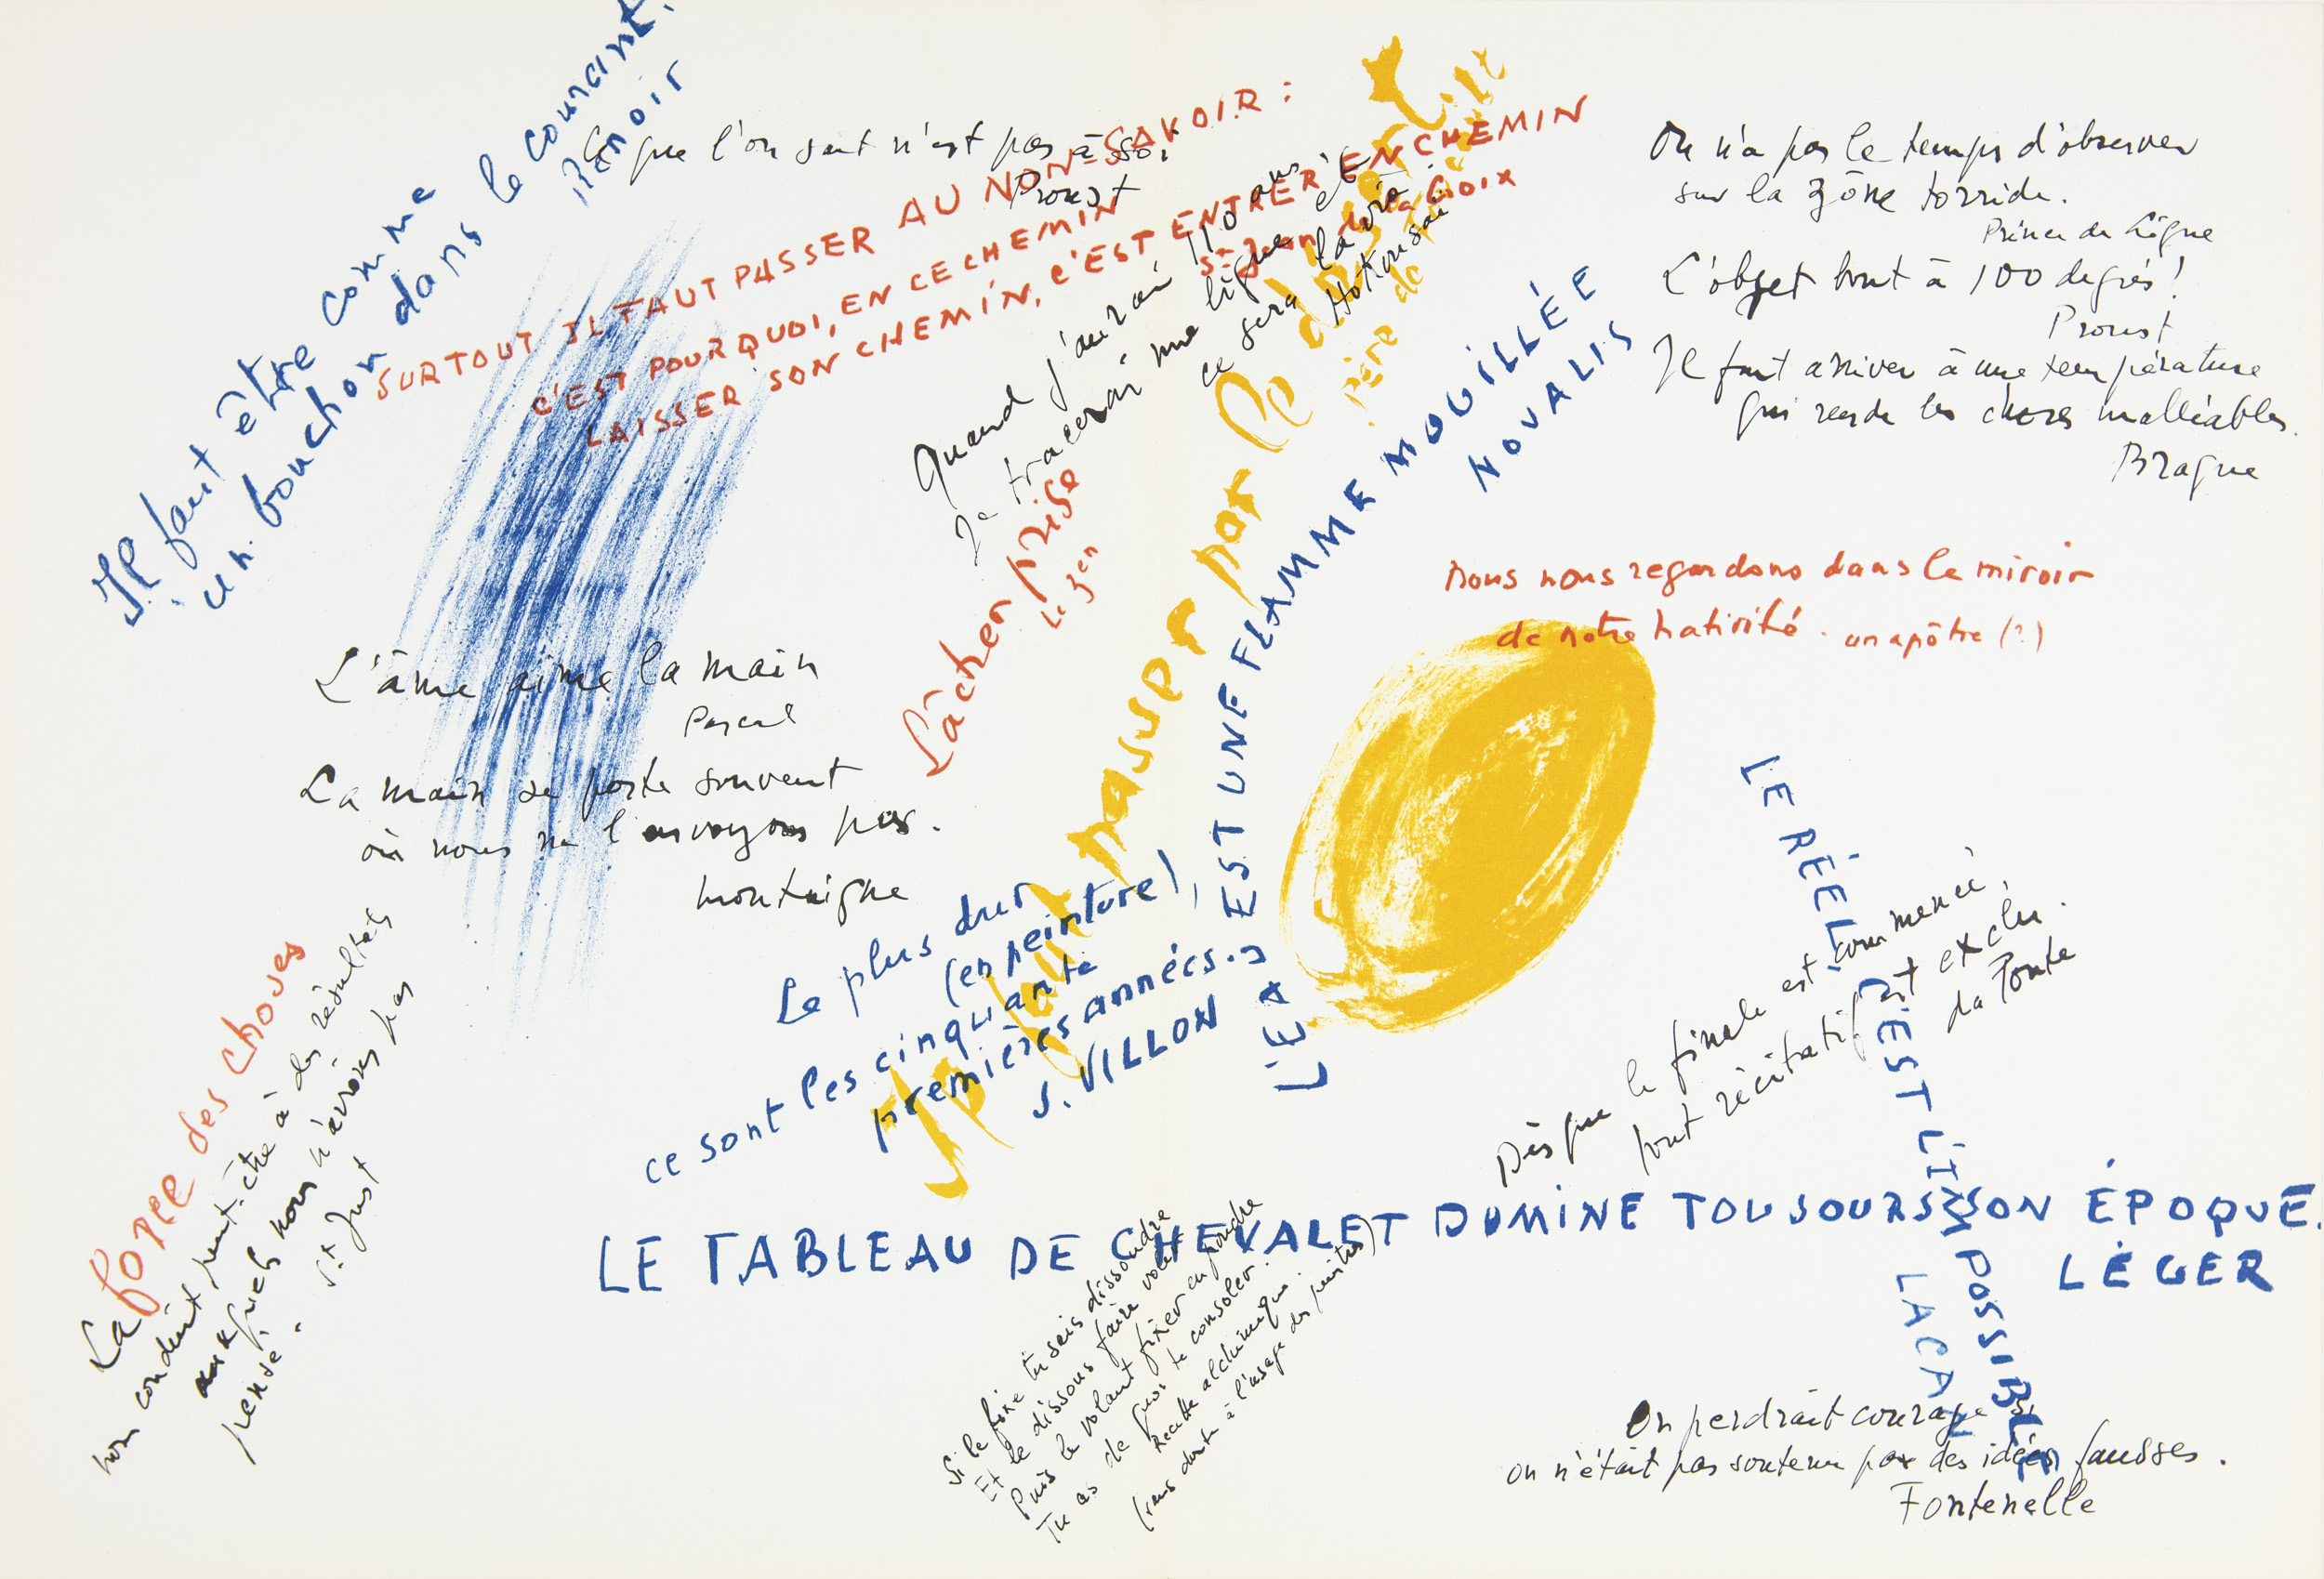 Il faut être comme
un bouchon dans le courant.
Renoir
Ce que l'on sait n'est pas à soi
Proust
SURTOUT IL FAUT PASSER AU NON-SAVOIR :
C'EST POURQUOI, EN CE CHEMIN
LAISSER SON CHEMIN, C'EST ENTRER EN CHEMIN
St Jean de la Croix
Quand j'aurai 110 ans
Je tracerai une ligne et
ce sera la vie
Hokousaï
Lâcher prise
le zen
Il faut passer par le
père de
L'EAU EST UNE FLAMME MOUILLÉE
NOVALIS
On n'a pas le temps d'observer
sur la zône torride.
Prince de Ligne
L'objet bout à 100 degrés !
Proust
Il faut arriver à une température
qui rende les choses malléables.
Braque
nous nous regardons dans le miroir
de notre nativité. un apôtre (?)
L'âme aime la main
Pascal
La main se porte souvent
où nous ne l'envoyons pas.
Montaigne
Le plus dur
(en peinture),
ce sont les cinquante
premières années.
J. VILLON
LE RÉEL, C'EST L'IMPOSSIBLE
LACAN
Dès que le finale est commencé,
tout récitatif est exclu.
da Ponte
La force des choses
nous conduit peut-être à des résultats
auxquels nous n'avions pas
pensé.
St Just
LE TABLEAU DE CHEVALET DOMINE TOUJOURS SON ÉPOQUE.
LÉGER
Si le fixe tu sais dissoudre
Et le dissous faire voler
Puis le volant fixer en poudre
Tu as de quoi te consoler.
Recette alchimique.
(sans doute à l'usage des peintres)
On perdrait courage si
on n'était pas soutenu par des idées fausses.
Fontenelle